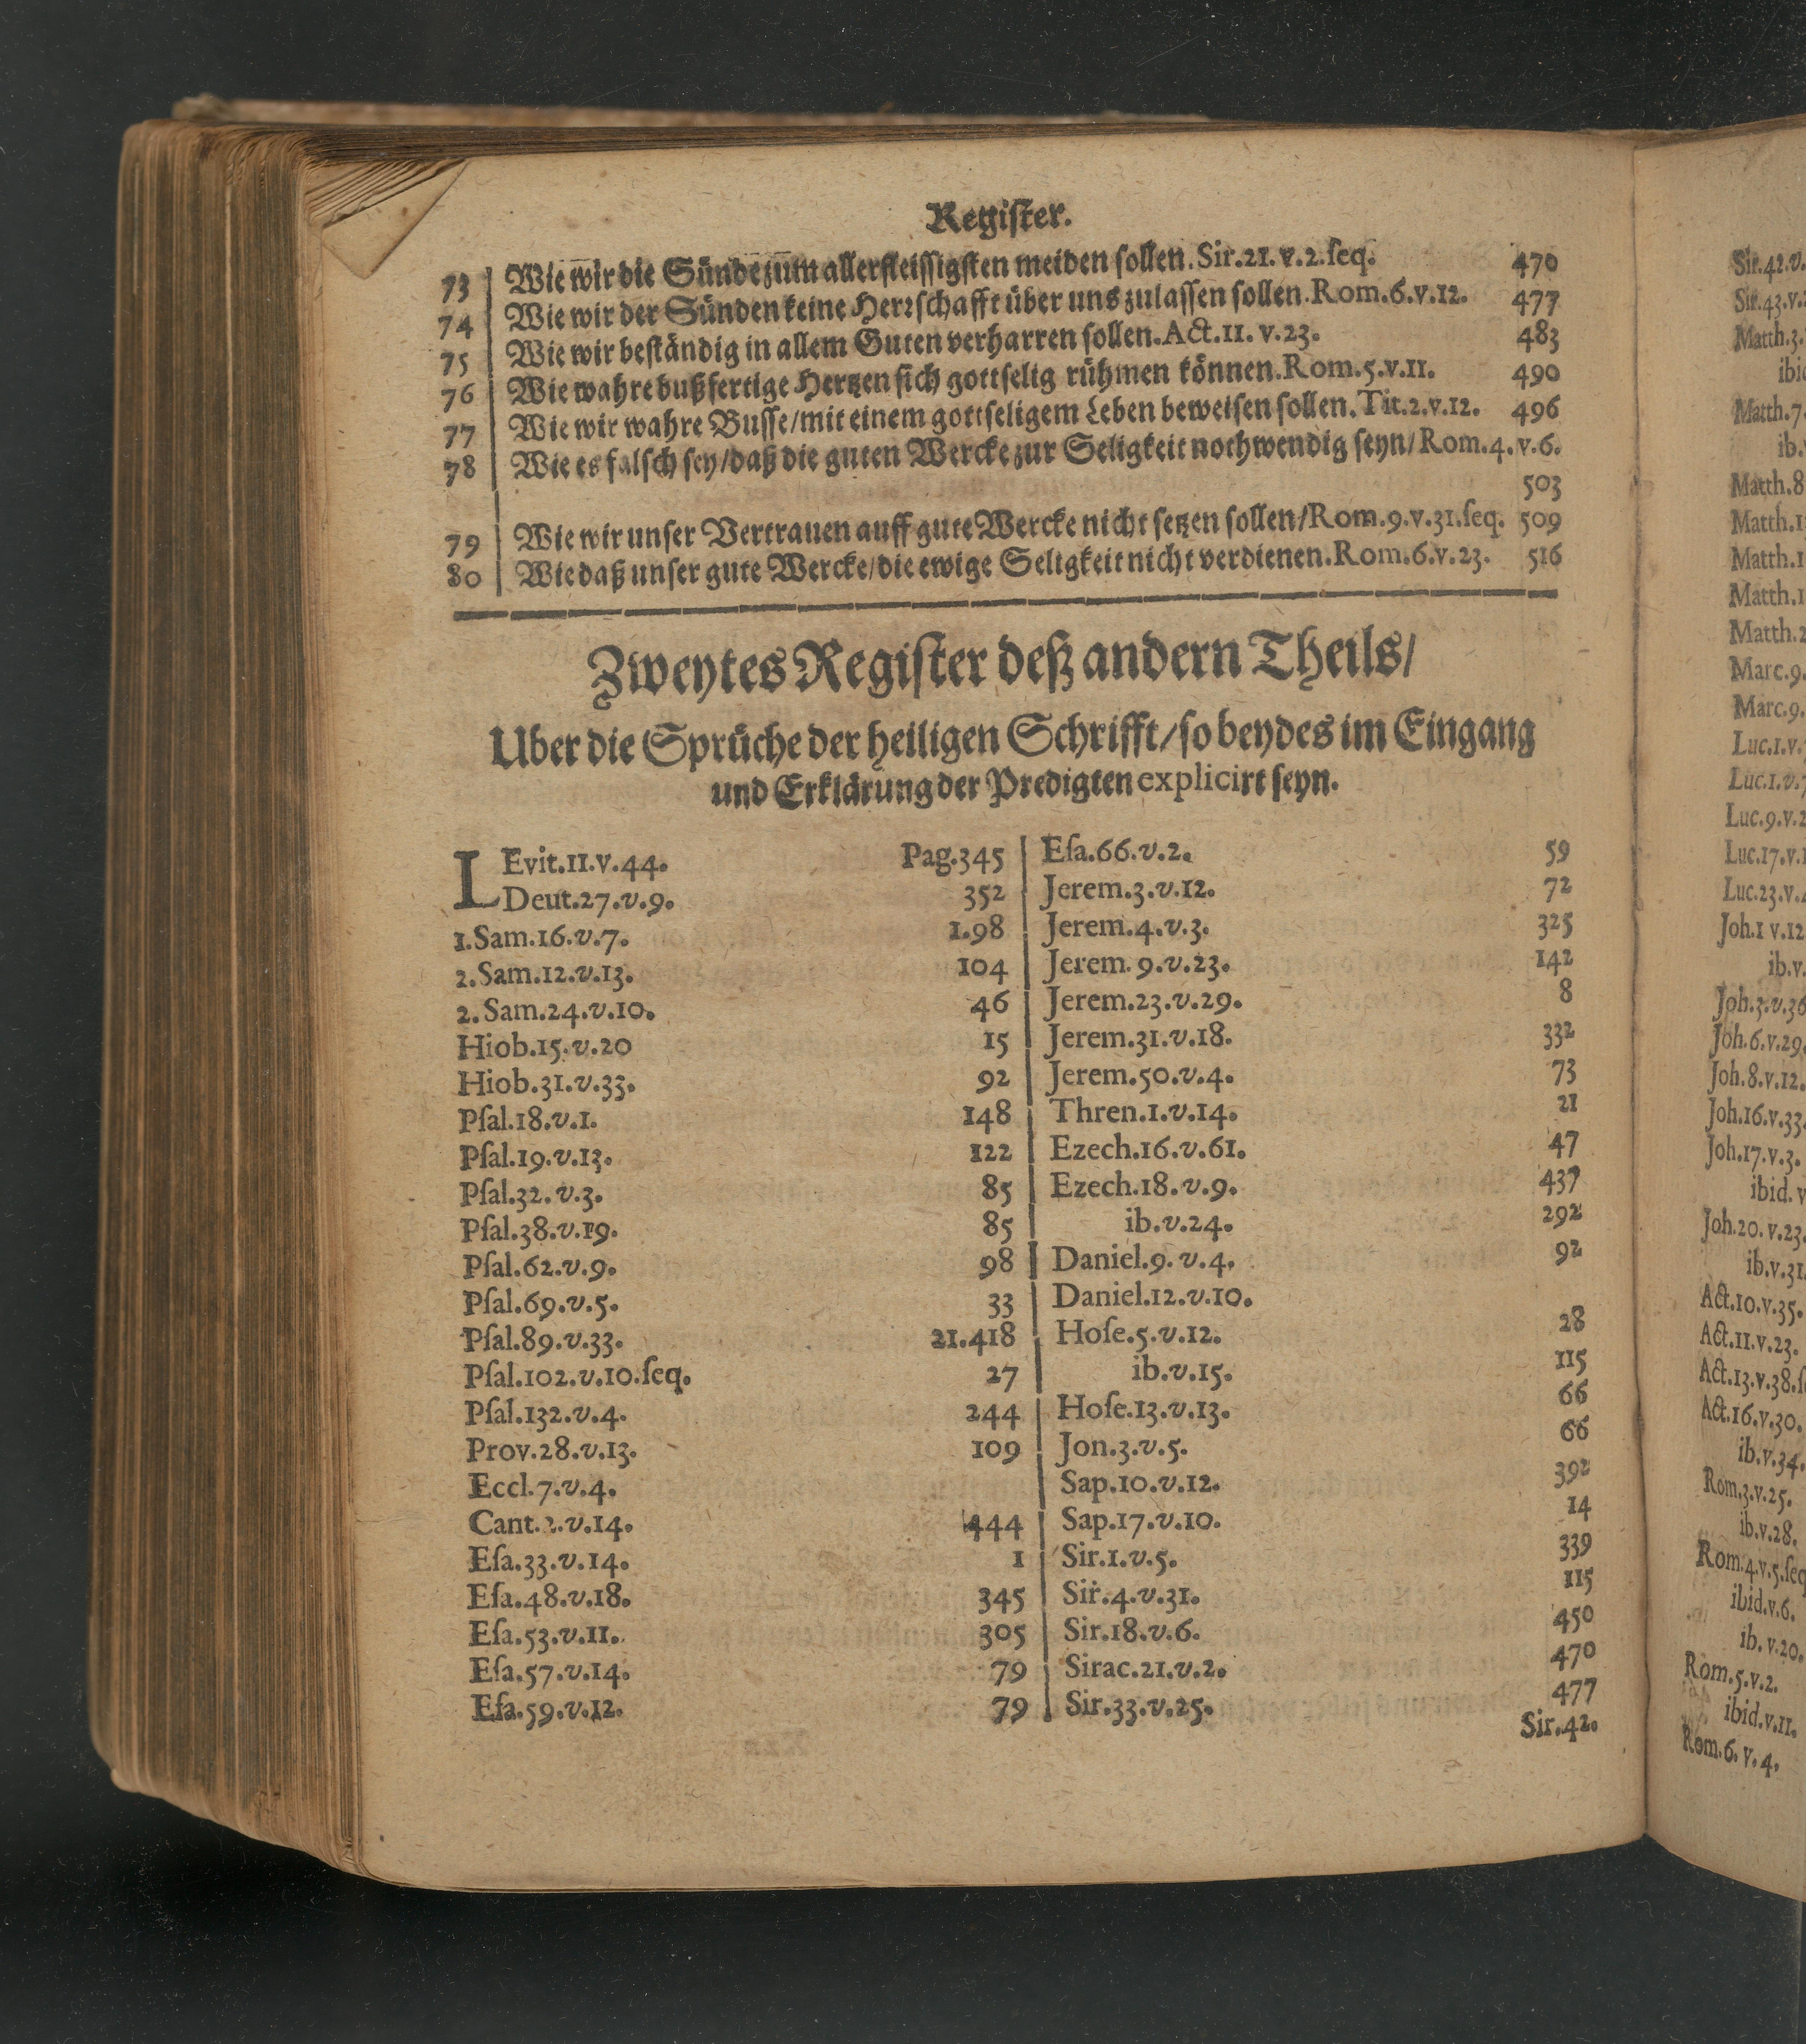 Register.
73 Wie wir die Sünde zum allerfleissigsten meiden sollen. Sir.21.v.2.seq. 470
74 Wie wir der Sünden keine Herrschafft über uns zulassen sollen. Rom.6.v.12. 477
75 Wie wir beständig in allem Guten verharren sollen. Act.11.v.23. 483
76 Wie wahre bußfertige Hertzen sich gottselig rühmen können. Rom.5.v.11. 490
77 Wie wir wahre Busse/mit einem gottseligem Leben beweisen sollen. Tit.2.v.12. 496
78 Wie es falsch sey/daß die guten Wercke zur Seligkeit nothwendig seyn/Rom.4.v.6.
503
79 Wie wir unser Vertrauen auff gute Wercke nicht setzen sollen/Rom.9.v.31.seq. 509
80 Wie daß unser gute Wercke/die ewige Seligkeit nicht verdienen. Rom.6.v.23. 516
Zweytes Register deß andern Theils/
Uber die Sprüche der heiligen Schrifft/so beydes im Eingang
und Erklärung der Predigten explicirt seyn.
LEvit.11.v.44. Pag.345
Deut.27.v.9. 352
1.Sam.16.v.7. 1.98
2.Sam.12.v.13. 104
2.Sam.24.v.10. 46
Hiob.15.v.20 15
Hiob.31.v.33. 92
Psal.18.v.1. 148
Psal.19.v.13. 122
Psal.32.v.3. 85
Psal.38.v.19. 85
Psal.62.v.9. 98
Psal.69.v.5. 33
Psal.89.v.33. 21.418
Psal.102.v.10.seq. 27
Psal.132.v.4. 244
Prov.28.v.13. 109
Eccl.7.v.4.
Cant.2.v.14. 444
Esa.33.v.14. 1
Esa.48.v.18. 345
Esa.53.v.11. 305
Esa.57.v.14. 79
Esa.59.v.12. 79
Esa.66.v.2. 59
Jerem.3.v.12. 72
Jerem.4.v.3. 325
Jerem.9.v.23. 142
Jerem.23.v.29. 8
Jerem.31.v.18. 332
Jerem.50.v.4. 73
Thren.1.v.14. 21
Ezech.16.v.61. 47
Ezech.18.v.9. 437
ib.v.24. 292
Daniel.9.v.4. 92
Daniel.12.v.10.
Hose.5.v.12. 28
ib.v.15. 115
Hose.13.v.13. 66
Jon.3.v.5. 66
Sap.10.v.12. 392
Sap.17.v.10. 14
Sir.1.v.5. 339
Sir.4.v.31. 115
Sir.18.v.6. 450
Sirac.21.v.2. 470
Sir.33.v.25. 477
Sir.42.
Sir.42.v.
Sir.43.v.
Matth.3.
Matth.7.
ib.
Matth.8
Matth.1
Matth.1
Matth.1
Matth.2
Marc.9.
Marc.9.
Luc.1.v.
Luc.1.v.7
Luc.9.v.2
Luc.17.v.1
Luc.23.v.
Joh.1 v.12
ib.v.
Joh.3.v.36
Joh.6.v.29.
Joh.8.v.12.
Joh.16.v.33.
Joh.17.v.3.
ibid.v
Joh.20.v.23.
ib.v.31.
Act.10.v.35.
Act.11.v.23.
Act.13.v.38.s
Act.16.v.30.
ib.v.34.
Rom.3.v.25.
ib.v.28.
Rom.4.v.5.seq
ibid.v.6.
ib.v.20.
Rom.5.v.2.
ibid.v.11.
Rom.6.v.4.